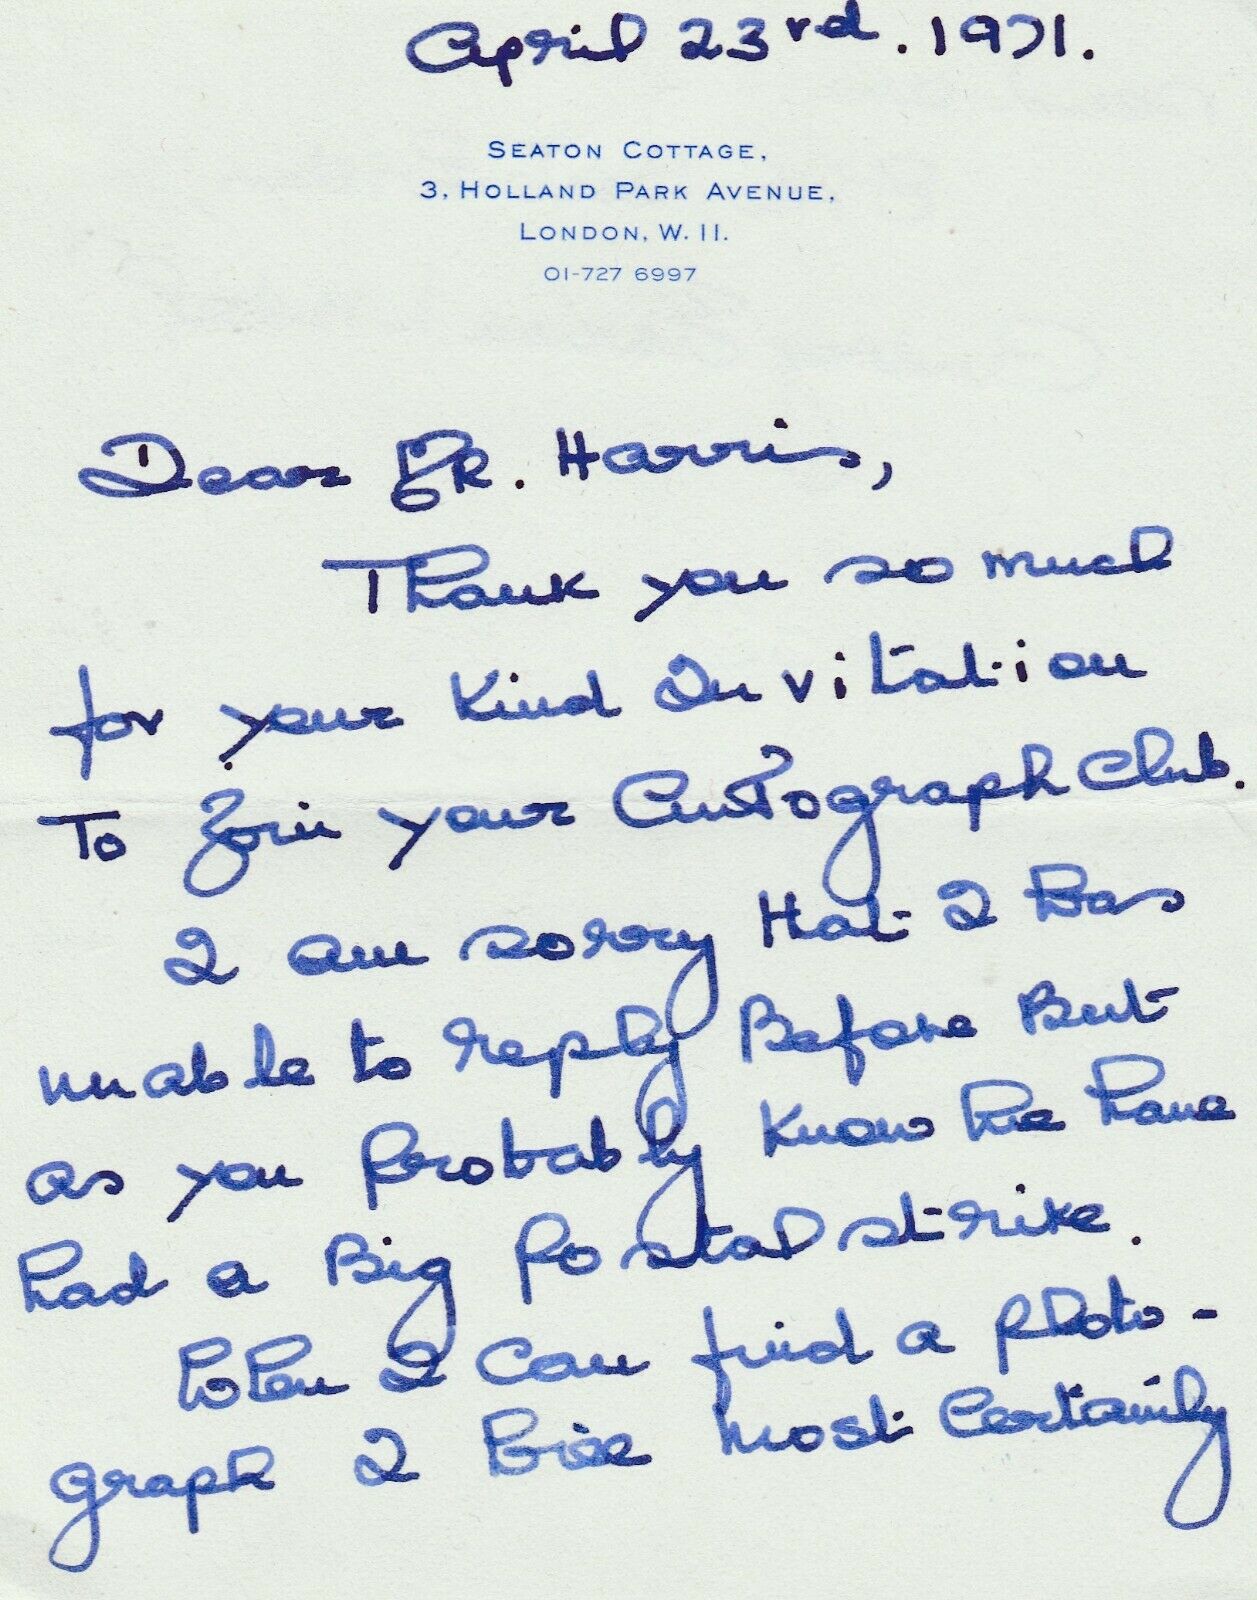 April 23rd. 1971.
SEATON COTTAGE,
3, HOLLAND PARK AVENUE,
LONDON, W. 11.
01-727 6997
Dear Harris,
Thank you so much
for your kind Invitation
To Join your Autograph Club.
I am sorry that I was
unable to reply Before But
as you probably know we have
had a Big postal strike.
When I can find a photo-
graph I will most certainly